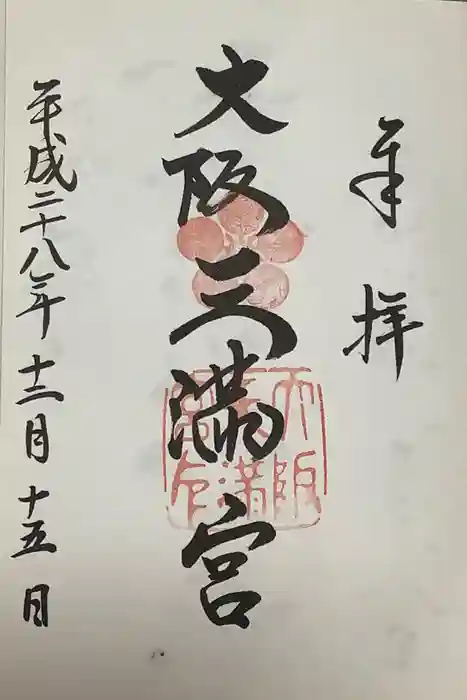 奉拝
大阪天満宮
平成二十八年十二月十五日
大阪
天満
宮印